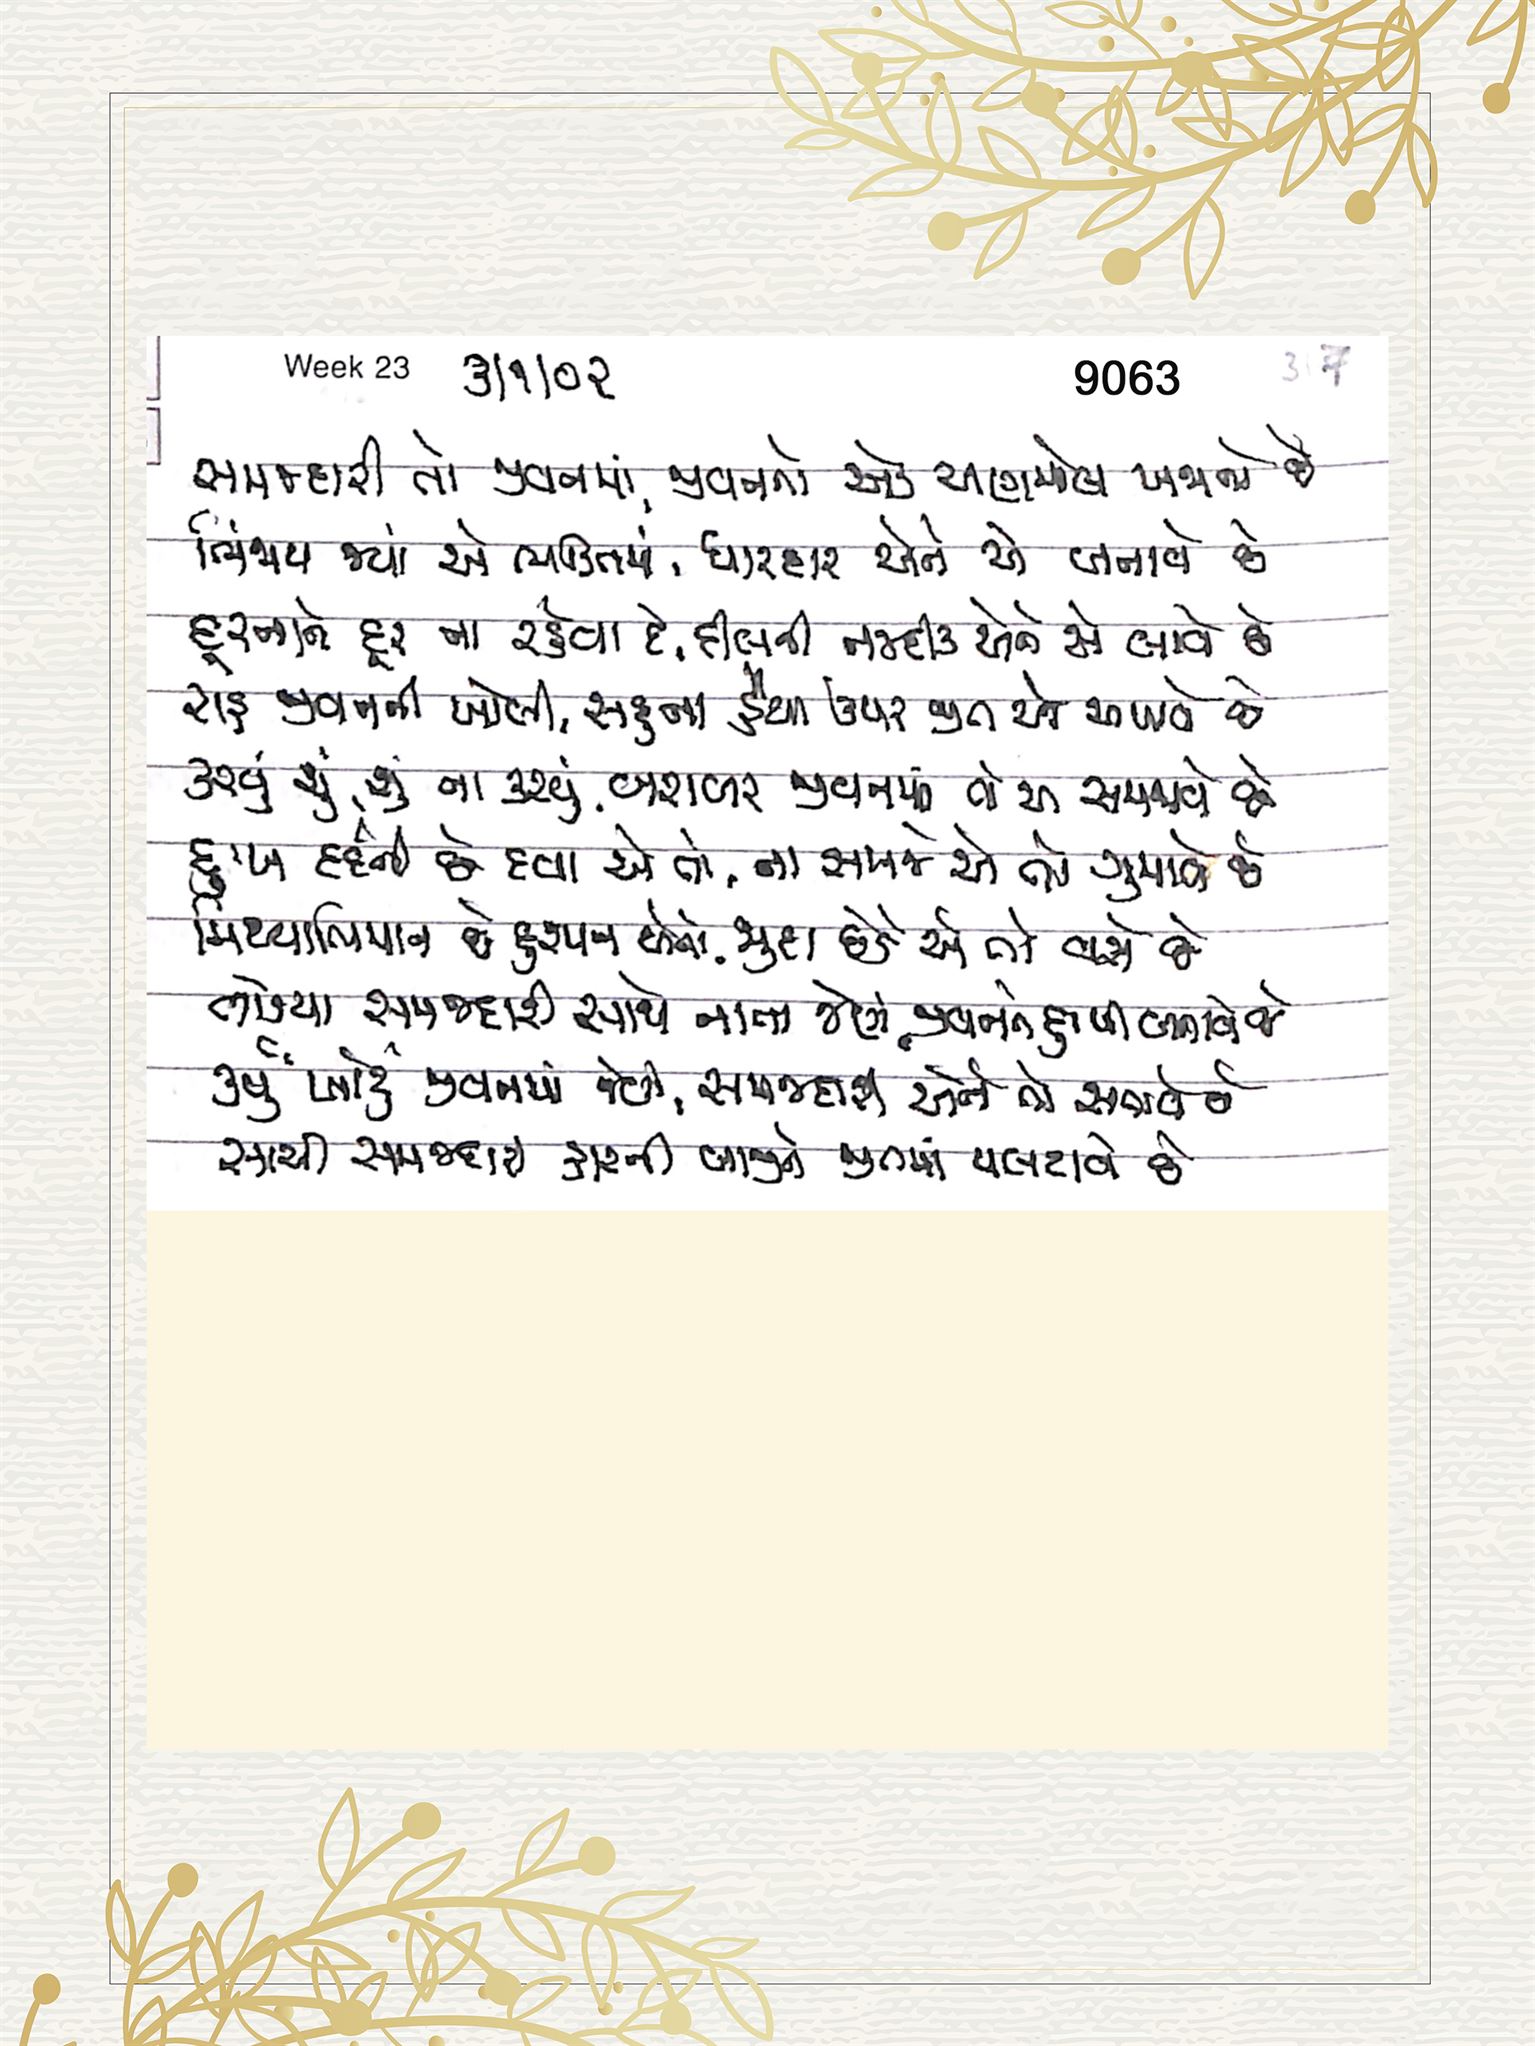 Week 23 3/1/02 9063
સમજદારી તો જીવનમાં, જીવનનો એક અણમોલ ખજાનો છે
ભિંજાય જ્યાં એ ભક્તિમાં, ધારદાર એને એ બનાવે છે
દૂરનાને દૂર ના રહેવા દે, દીલની નજદીક એને એ લાવે છે
રાહ જીવનની ખોલી, સહુના હૈયા ઉપર જીત એ અપાવે છે
કરવું શું, શું ના કરવું, બરાબર જીવનમાં તો એ સમજાવે છે
દુઃખ દર્દની છે દવા એ તો, ના સમજે એ તો ગુમાવે છે
મિથ્યાભિમાન છે દુશ્મન એનો, જુદા છેડે એ તો વસે છે
જોડયા સમજદારી સાથે નાતા જેણે, જીવનને સુખી બનાવે છે
કર્યું ખોટું જીવનમાં જેણે, સમજદારી એને તો સતાવે છે
સાચી સમજદારી હારની બાજીને જીતમાં પલટાવે છે